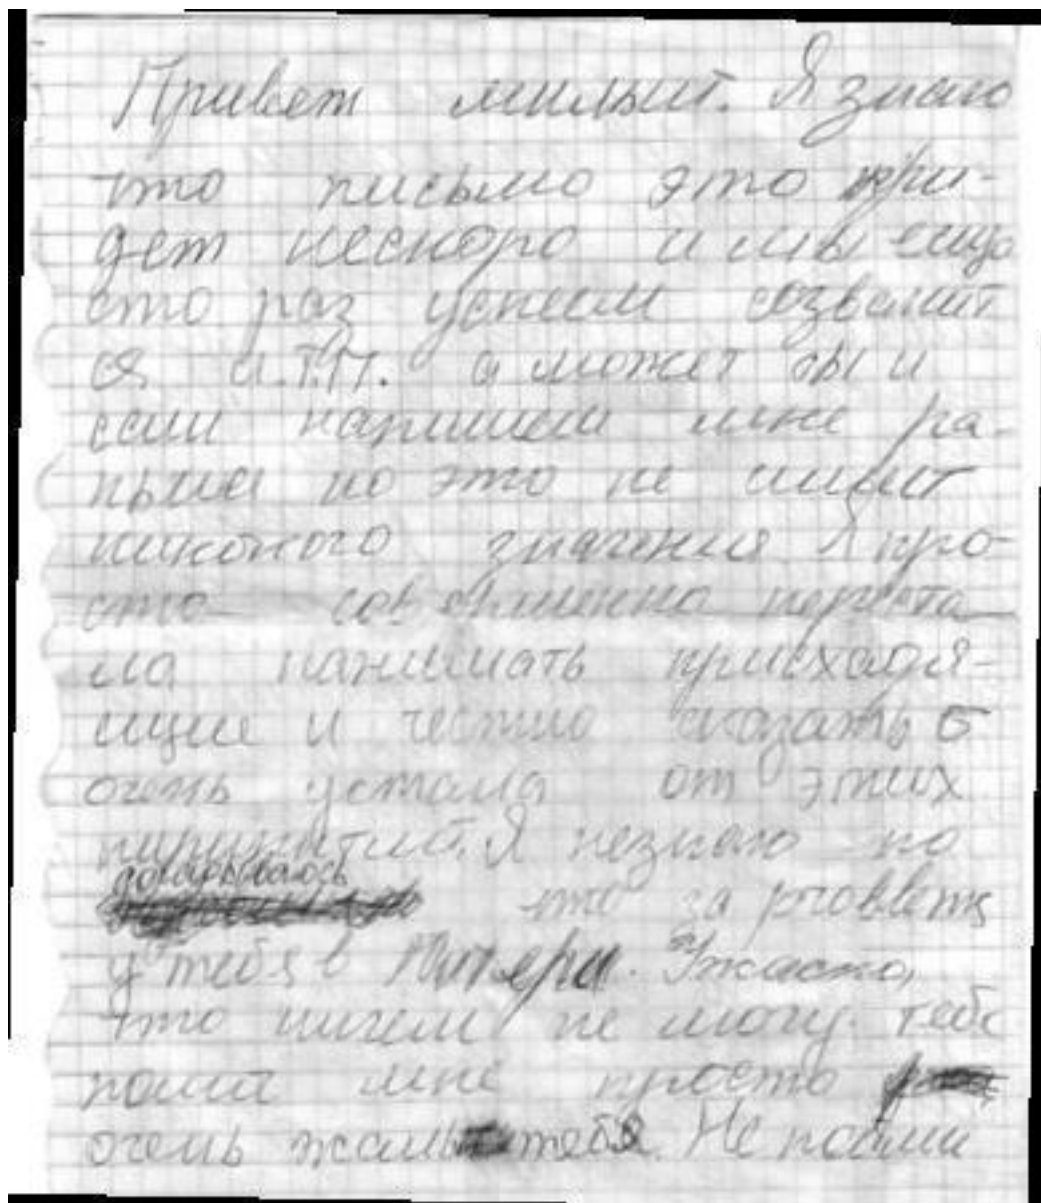 Привет милый. Я знаю
что письмо это при-
дет нескоро и мы ещо
сто раз успеем созванит
ся и.т.п. а может ты и
сам напишеш мне ра-
ньше но это не имеет
никокого значения Я про-
сто совершенно перета
ла панимать приехадя-
щие и честно сказать
очень устала от этих
непонятий. Я незнаю но
догадываюсь что за
у тебя в Питери. Ужасно,
что ничем не могу тебе
помч мне просто
очень жаль тебя. Не пойми